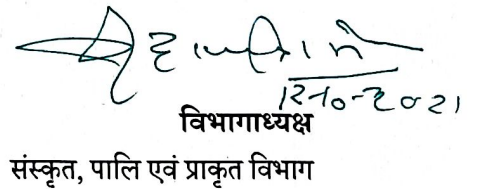 12-10-2021
विभागाध्यक्ष
संस्कृत, पालि एवं प्राकृत विभाग